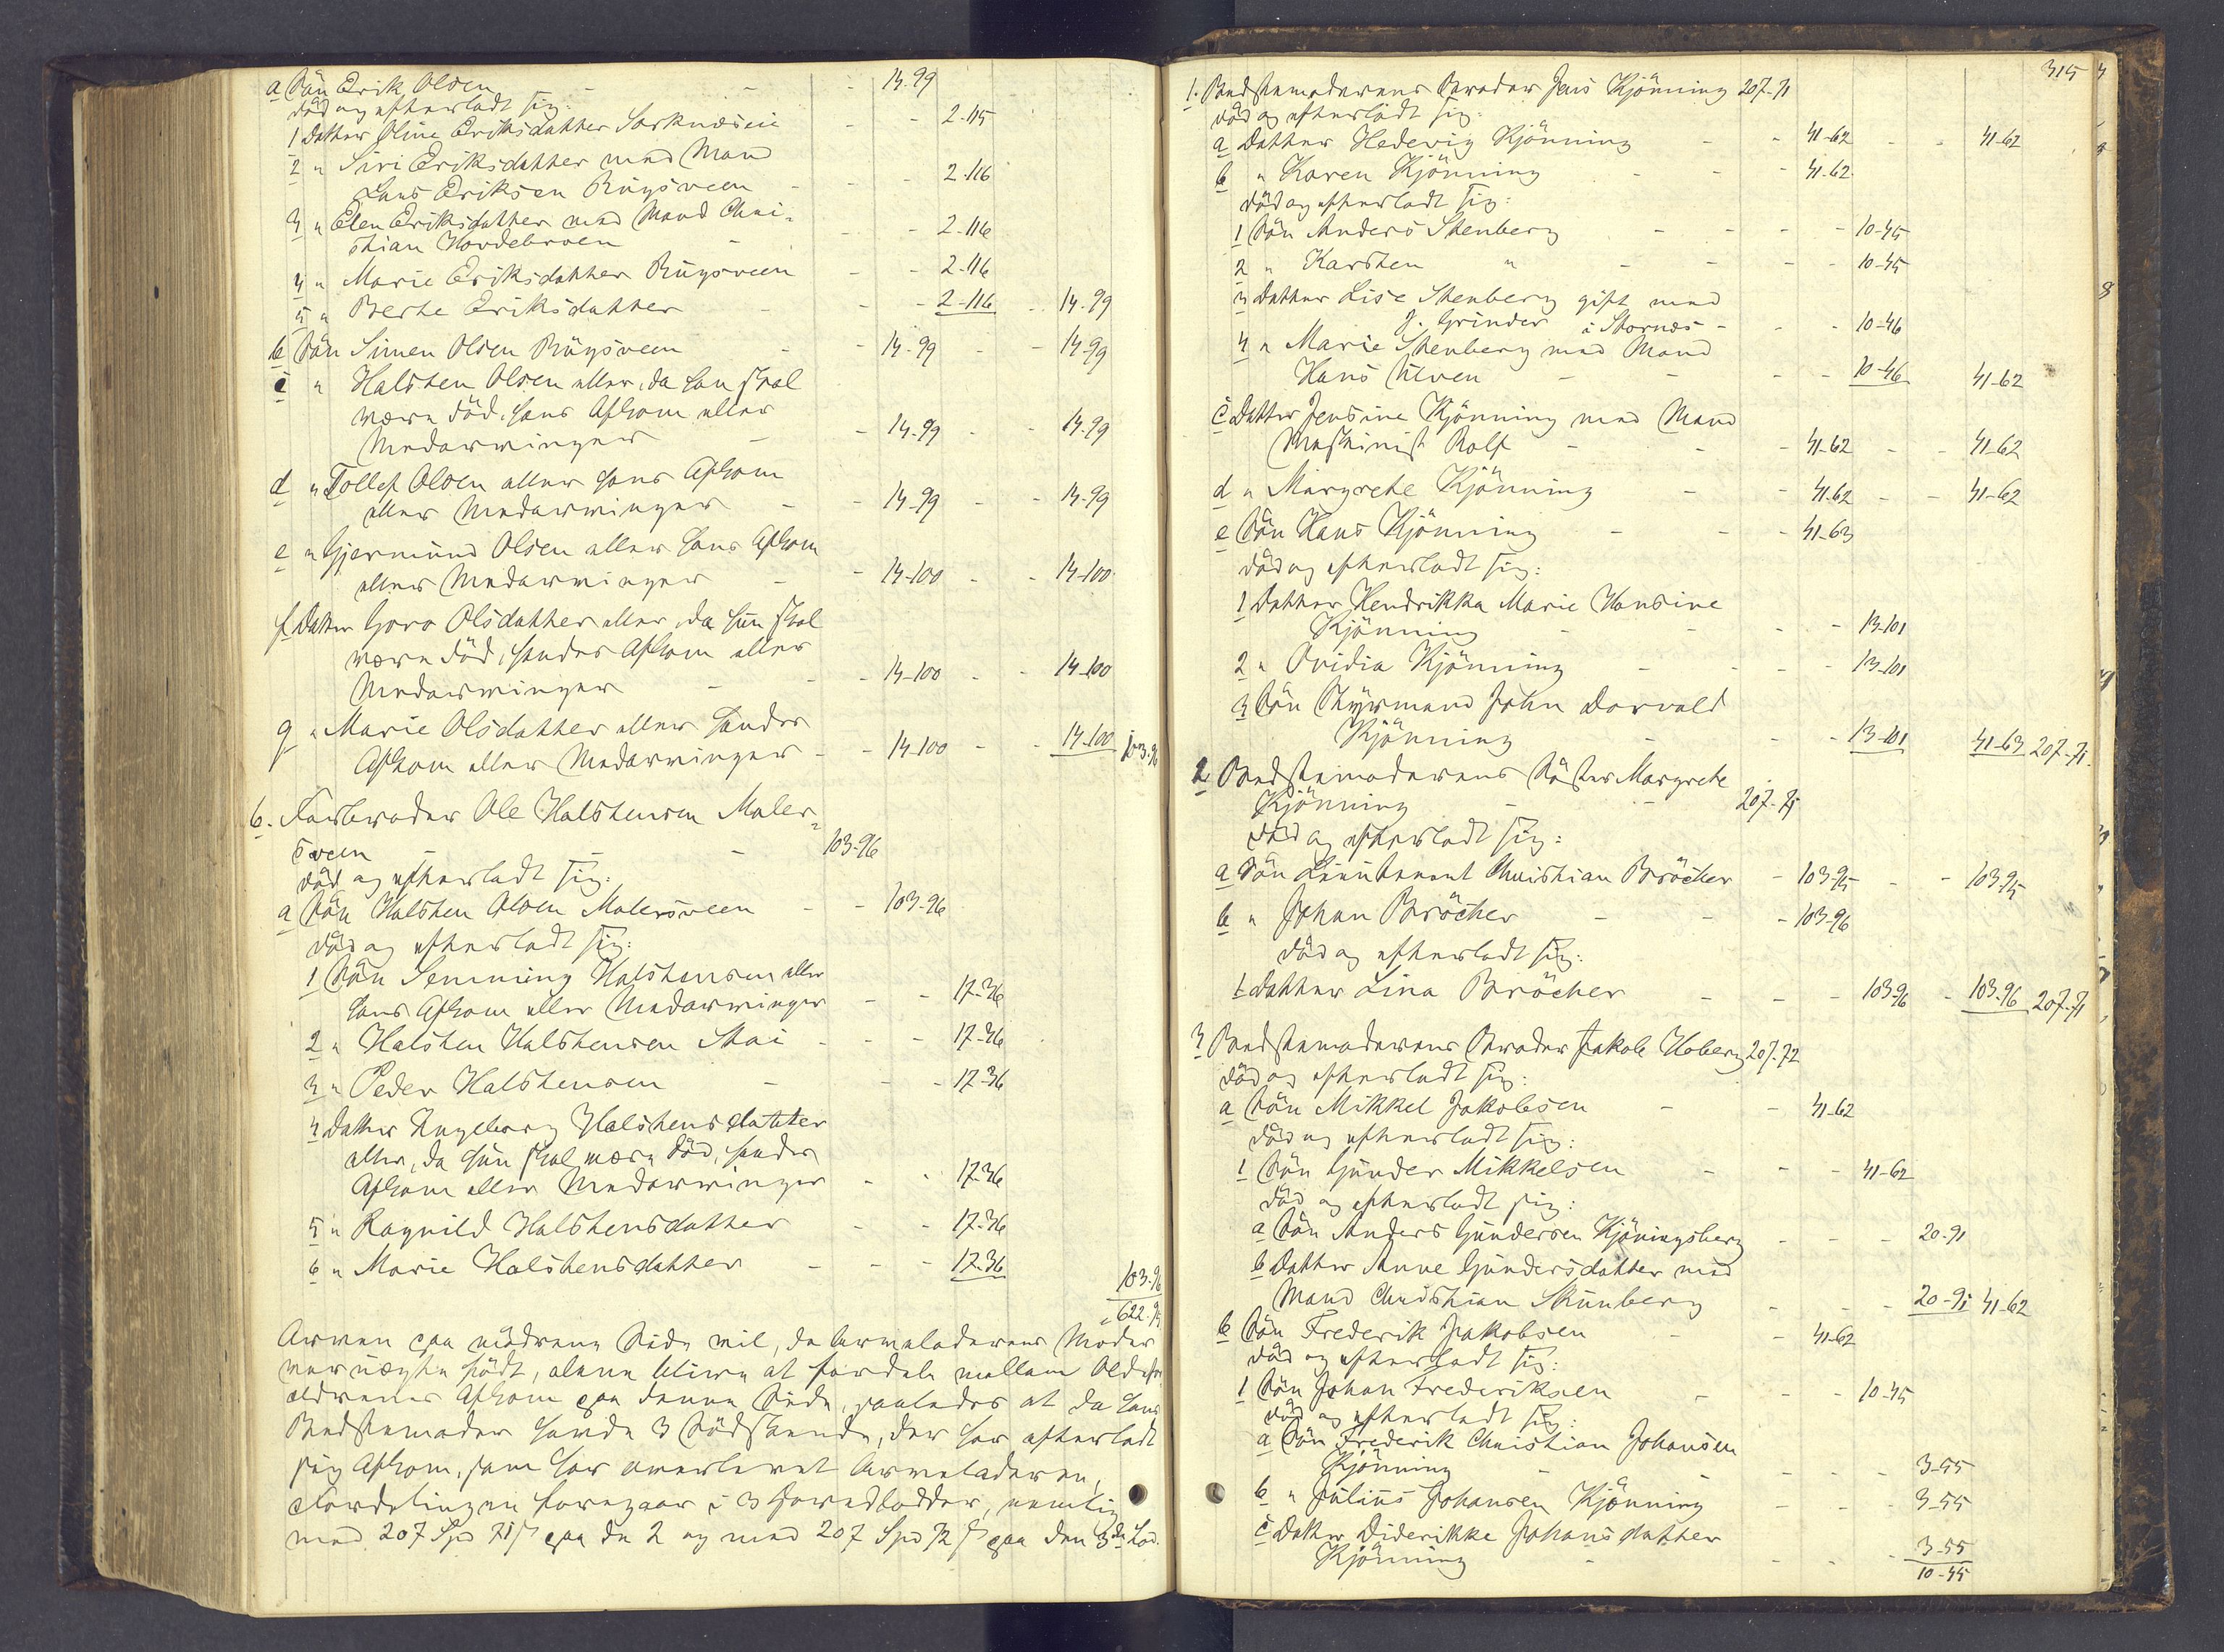 a Søn Erik Olsen - - - 14-99
død og efterladt sig:
1 Datter Oline Eriksdatter Sorknæseie - - 2-115
2 " Siri Eriksdatter med Mand
Lars Eriksen Rugsveen - - - 2-116
3 " Elen Eriksdatter med Mand Chri-
stian Hordebroen - - - 2-116
4 " Marie Eriksdatter Rugsveen - - 2-116
5 " Berte Eriksdatter - - - 2-116 - - 14-99
b Søn Simen Olsen Rugsveen - - 14-99 - - 14-99
c " Halsten Olsen eller, da han skal
være død, hans Afkom eller
Medarvinger - - 14-99 - - 14-99
d " Tollef Olsen eller hans Afkom
eller Medarvinger - - 14-99 - - 14-99
e " Gjermund Olsen eller hans Afkom
eller Medarvinger - - 14-100 - - 14-100
f Datter Goro Olsdatter eller, da hun skal
være død, hendes Afkom eller
Medarvinger - - - 14-100 - - 14-100
g " Marie Olsdatter eller hendes
Afkom eller Medarvinger - - 14-100 - - 14-100 103-96
6. Farbroder Ole Halstensen Maler-
sveen - - 103-96
død og efterladt sig:
a Søn Halsten Olsen Malersveen - - 103-96
død og efterladt sig:
1 Søn Semming Halstensen eller
hans Afkom eller Medarvinger - - 17-36
2 " Halsten Halstensen Moi - - - 17-36
3 " Peder Halstensen - - - 17-36
4 Datter Ingeborg Halstensdatter
eller, da hun skal være død, hendes
Afkom eller Medarvinger - - 17-36
5 " Ragnild Halstensdatter - - 17-36
6 " Marie Halstensdatter - - - 17-36 103-96
622-94
Arven paa mødrene Side vil, da Arveladerens Moder
var uægte født, alene blive at fordele mellem Oldefor-
ældrenes Afkom paa denne Side, saaledes at da hans
Bedstemoder havde 3 Sødskende, der har efterladt
sig Afkom, som har overlevet Arveladeren,
Fordelingen foregaar i 3 Hovedlodder, nemlig
med 207 Spd 71 ß paa de 2 og med 207 Spd 72 ß paa den 3die Lod.
315
1. Bedstemoderens Broder Jens Kjönning 207-71
død og efterladt sig:
a Datter Hedevig Kjönning - - 41-62 - - 41-62
b " Karen Kjönning - - - 41-62
død og efterladt sig:
1 Søn Anders Stenberg - - - - 10-45
2 " Karsten " - - - - 10-45
3 Datter Lise Stenberg gift med
J. Grinder i Stornæs - - - 10-46
4 " Marie Stenberg med Mand
Hans Ulven - - - - 10-46 41-62
c Datter Jensine Kjönning med Mand
Maskinist Rolf - - - 41-62 - - 41-62
d " Margrete Kjönning - - 41-62 - - 41-62
e Søn Hans Kjönning - - - 41-63
død og efterladt sig:
1 Datter Hendrikka Marie Hansine
Kjönning - - - - 13-101
2 " Ovidia Kjönning - - - - 13-101
3 Søn Styrmand John Dorvald
Kjönning - - - - 13-101 41-63 207-71.
2 Bedstemoderens Søster Margrete
Kjönning - - 207-71
død og efterladt sig:
a Søn Lieutenant Christian Bröcher - 103-95 - - 103-95
b " Johan Bröcher - - - 103-96
død og efterladt sig:
1 Datter Lina Bröcher - - - 103-96 - 103-96 207-71
3 Bedstemoderens Broder Jakob Hoberg 207-72
død og efterladt sig:
a Søn Mikkel Jakobsen - - 41-62
død og efterladt sig:
1 Søn Gunder Mikkelsen - - - 41-62
død og efterladt sig:
a Søn Anders Gundersen Kjöningsberg - - - 20-91
b Datter Anne Gundersdatter med
Mand Christian Skunberg - - - 20-91 41-62
b Søn Frederik Jakobsen - - 41-62
død og efterladt sig:
1 Søn Johan Frederiksen - - - 10-45
død og efterladt sig:
a Søn Frederik Christian Johansen
Kjönning - - - - 3-55
b " Julius Johansen Kjönning - - - 3-55
c Datter Diderikke Johansdatter
Kjönning - - - - 3-55
10-45